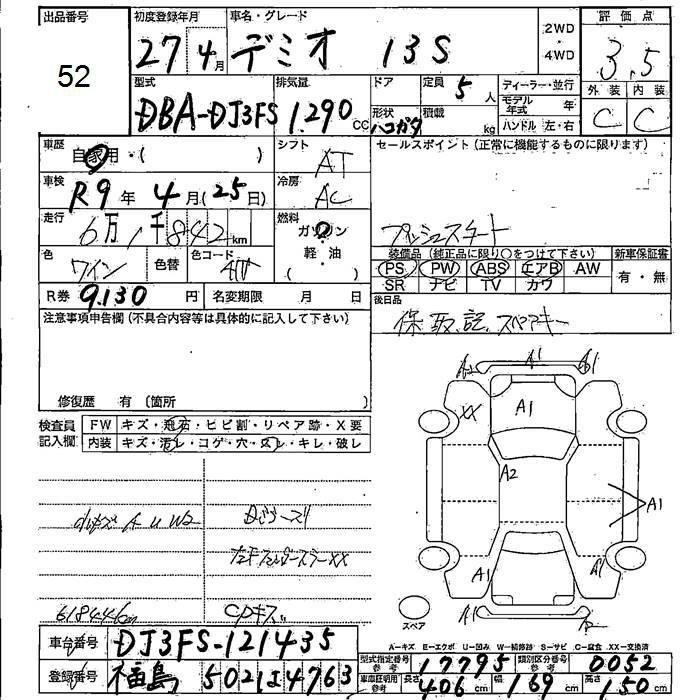 出品番号 初度登録年月 車名・グレード 2WD ・ 4WD 評価点
52 27年 4月 デミオ 13S 3.5
型式 排気量 ドア 定員 5人 ディーラー・並行 外装 内装
DBA-DJ3FS 1.290cc 形状 ハコガタ 積載 kg モデル年式 年 C C
ハンドル 左・右
車歴 自家用・( ) シフト AT セールスポイント(正常に機能するものに限ります)
車検 R9年 4月(25日) 冷房 AC
走行 6万1千842km 燃料 ガソリン・軽・油 ( ) プッシュスタート
色 ワイン 色替 色コード 41V 装備品(純正品に限り○をつけて下さい) 新車保証書
PS PW ABS エアB AW 有・無
SR ナビ TV カワ
R券 9,130円 名変期限 月 日 後日品
注意事項申告欄(不具合内容等は具体的に記入して下さい) 保、取、記、スペアキー
修復歴 有(箇所 )
検査員記入欄 FW キズ・飛石・ヒビ割・リペア跡・X要
内装 キズ・汚レ・コゲ・穴・スレ・キレ・破レ
A2 A1 A1
XX A1
A2
A1
A1 A1
A1 A2
スペア
61844km CPキズ
A=キズ E=エクボ U=凹み W=補修跡 S=サビ C=腐食 XX=交換済
車台番号 DJ3FS-121435 型式指定番号 参考 17795 類別区分番号 参考 0052
登録番号 福島 502 4763 車庫証明用 参考 長さ 406cm 幅 169cm 高さ 150cm